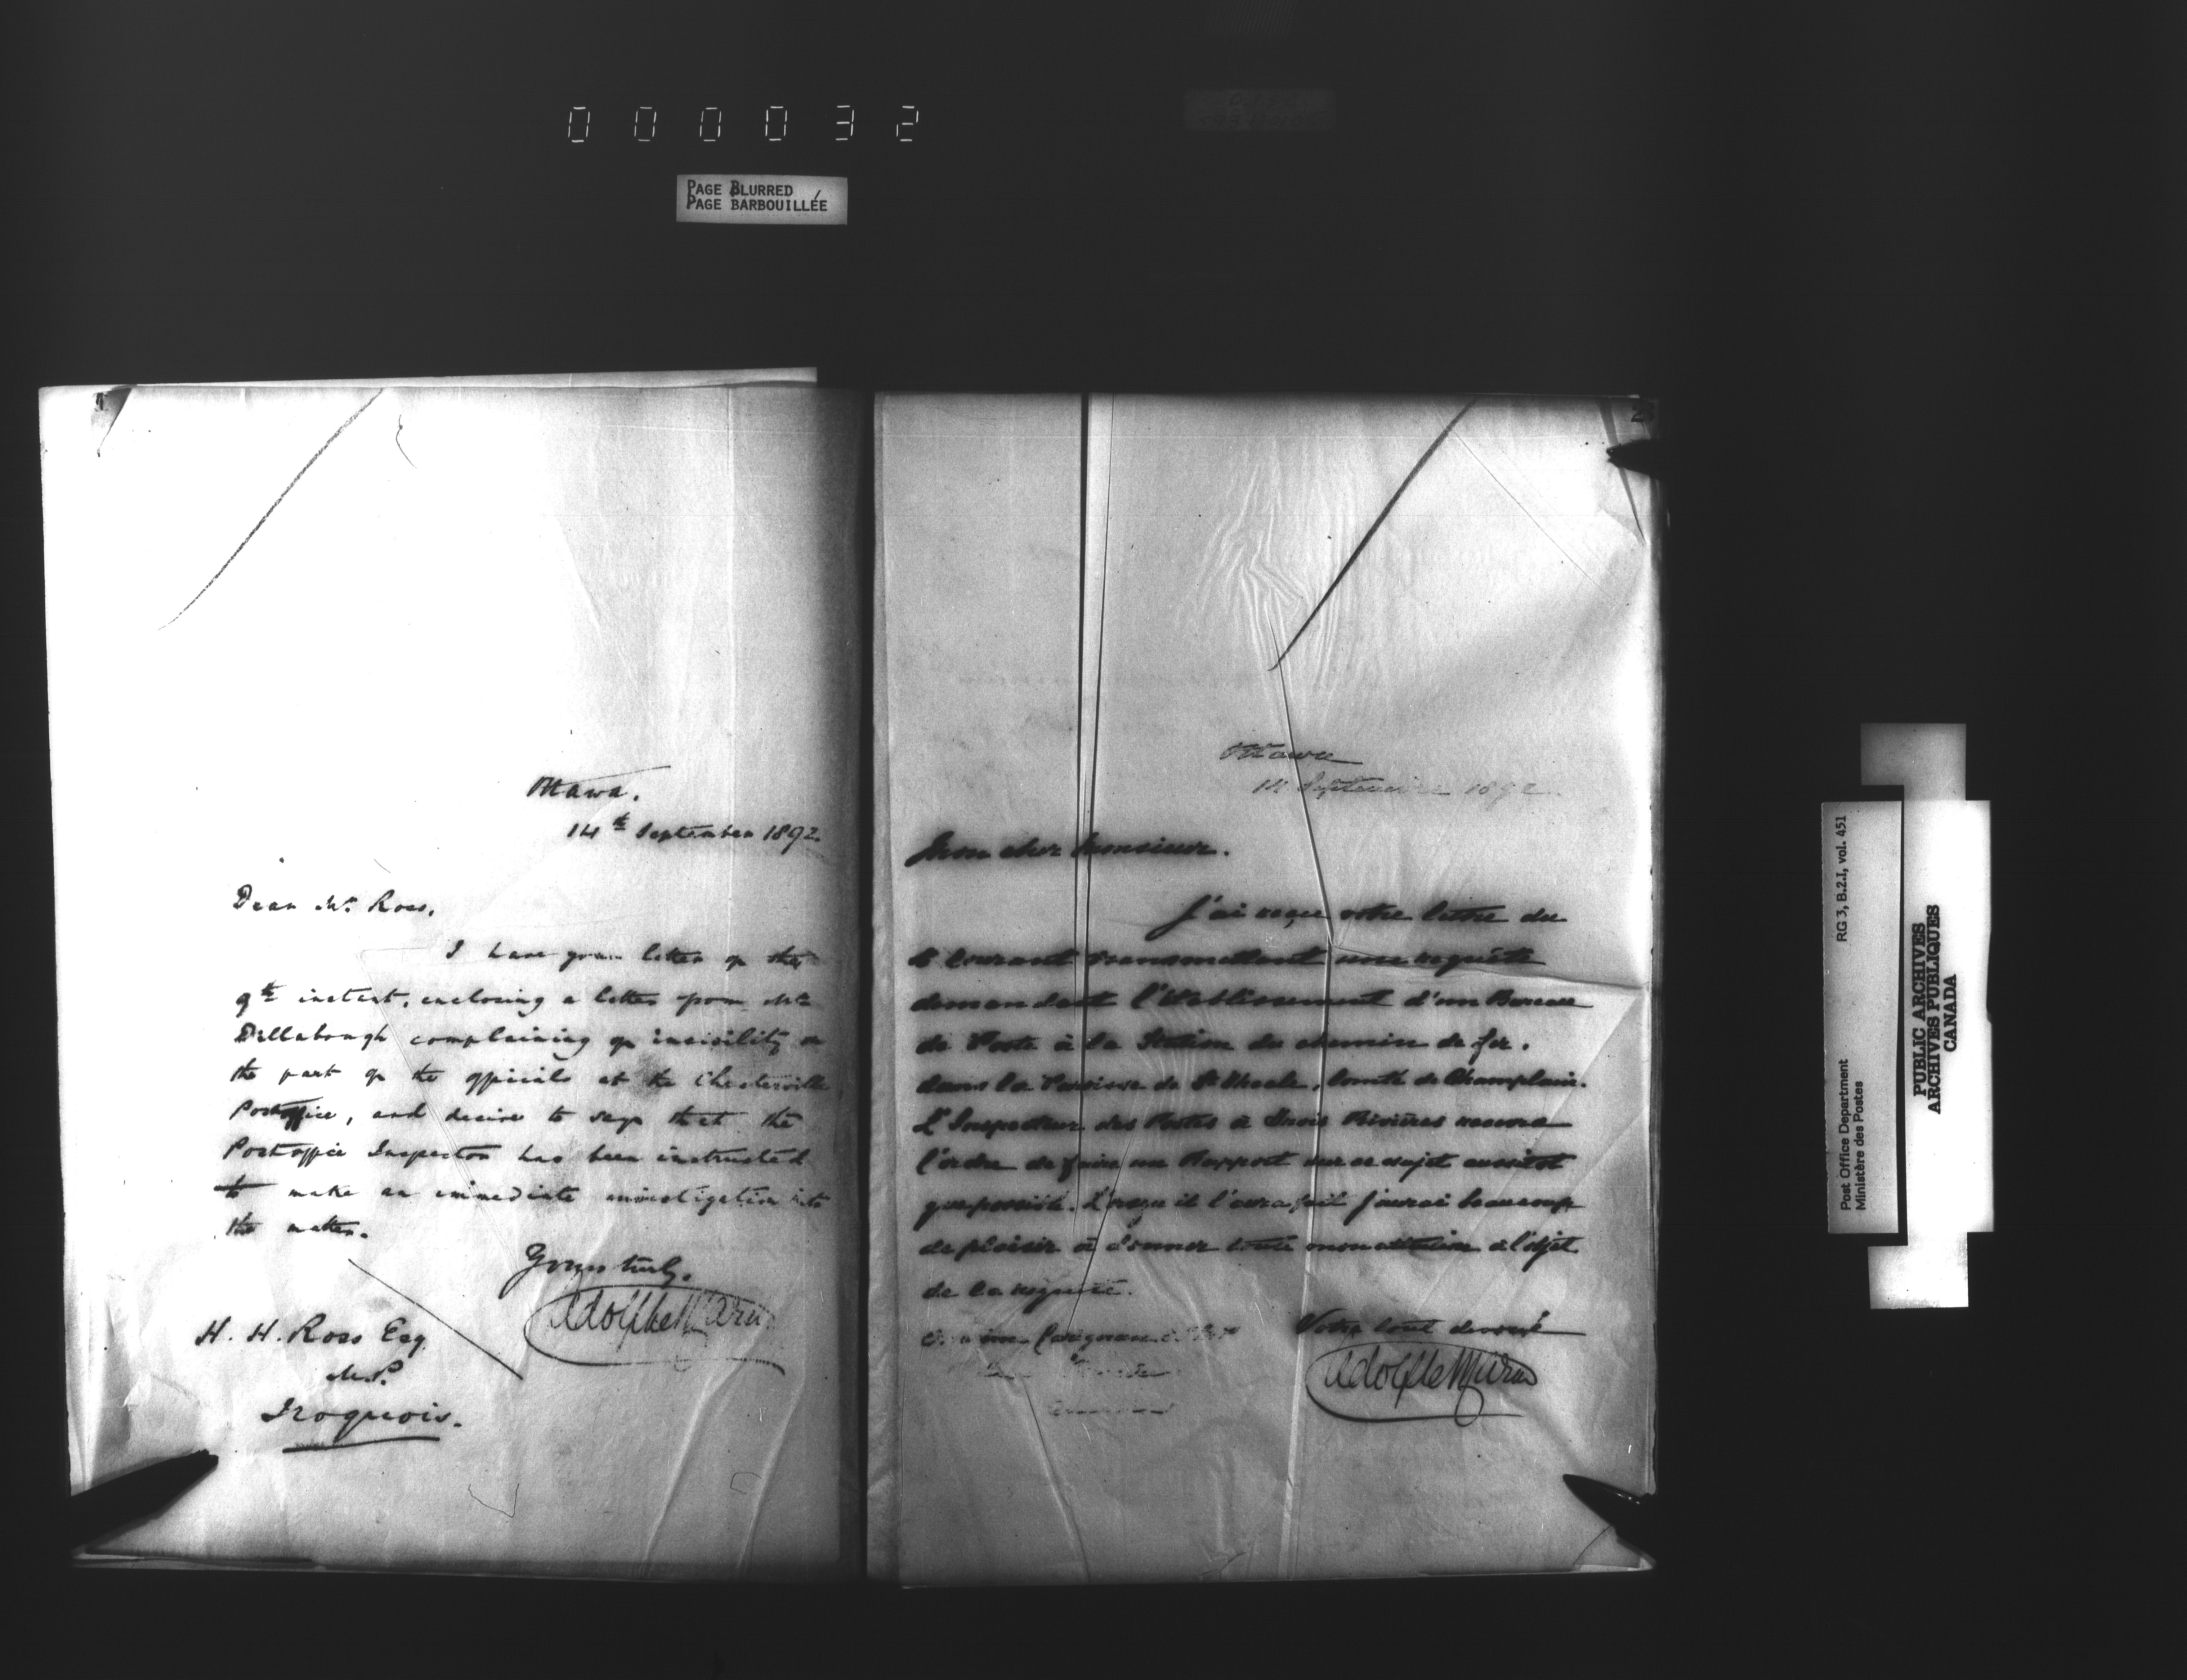 000032
PAGE BLURRED
PAGE BARBOUILLÉE
Ottawa.
14th September 1892.
Dear Mr. Ross,
I have your letter of the
9th instant, enclosing a letter from Mr
Dillabough complaining of incivility on
the part of the officials at the Chesterville
Postoffice, and desire to say that the
Postoffice Inspector has been instructed
to make an immediate investigation into
the matter.
Yours truly,
Adolphe Caron
H. H. Ross Esq.
M.P.
Iroquois.
2
Ottawa
14 Septembre 1892.
Mon cher Monsieur.
J'ai reçu votre lettre du
courant transmettant une requête
demandant l'établissement d'un Bureau
de Poste à la Station du chemin de fer.
dans la Paroisse de St Thecle, Comté de Champlain.
L'Inspecteur des Postes à Trois Rivières recevra
l'ordre de faire un Rapport sur ce sujet aussitot
que possible. Lorsqu'il l'aura fait j'aurai beaucoup
de plaisir à donner toute mon attention à l'objet
de la requête.
Votre tout dévoué
Adolphe Caron
Carignan
Post Office Department
Ministère des Postes
RG 3, B.2.I, vol. 451
PUBLIC ARCHIVES
ARCHIVES PUBLIQUES
CANADA